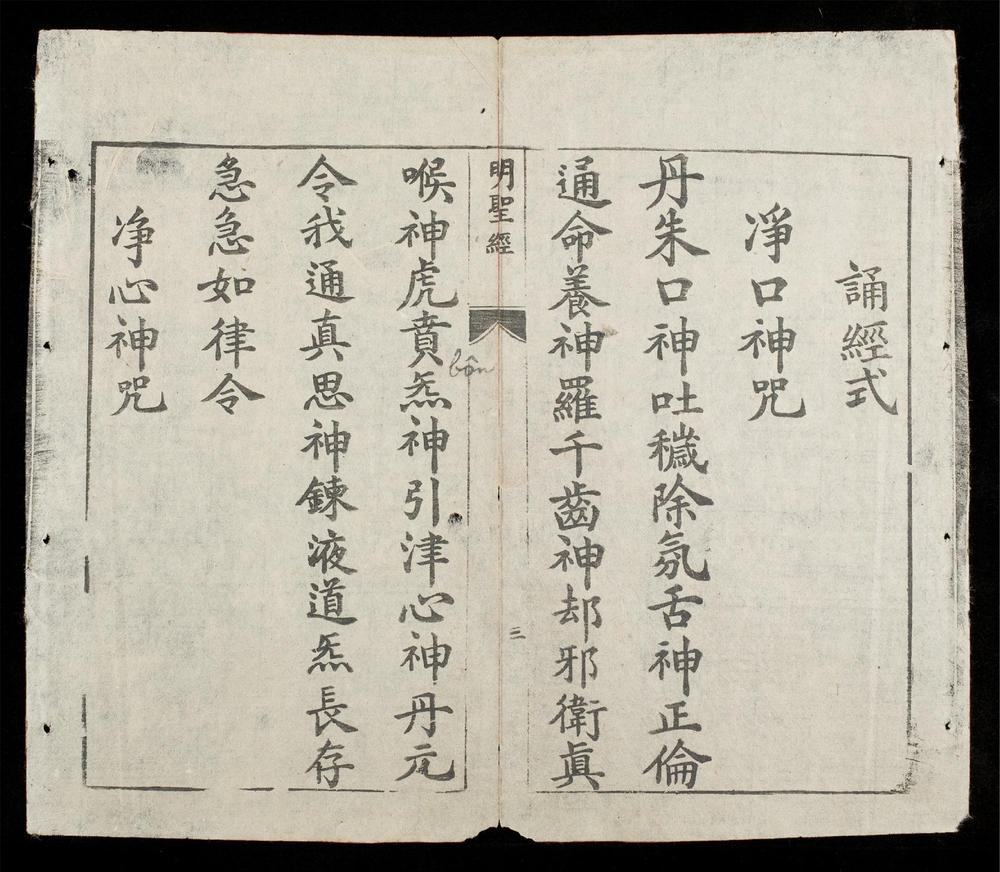 誦經式
淨口神咒
丹朱口神吐穢除氛舌神正倫
通命養神羅千齒神却邪衛眞
明聖經
三
喉神虎賁炁神引津心神丹元
bôn
令我通真思神鍊液道炁長存
急急如律令
净心神咒